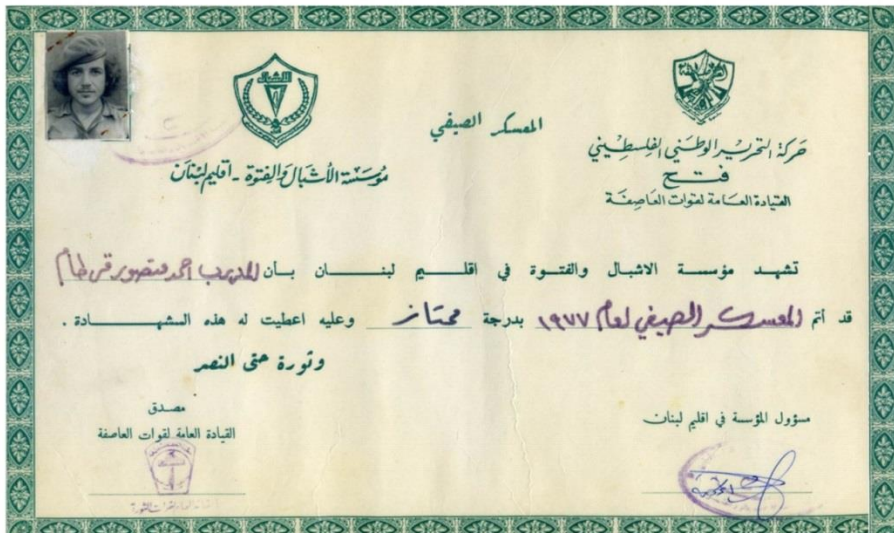 المعسكر الصيفي
حركة التحرير الوطني الفلسطيني
فتح
القيادة العامة لقوات العاصفة
الاشبال
مؤسسة الأشبال والفتوة - اقليم لبنان
تشهد مؤسسة الاشبال والفتوة في اقليم لبنان بأن المدرب احمد منصور
قد أتم المعسكر الصيفي لعام ١٩٧٧ بدرجة ممتاز وعليه اعطيت له هذه الشهادة .
وثورة حتى النصر
مسؤول المؤسسة في اقليم لبنان
مصدق
القيادة العامة لقوات العاصفة